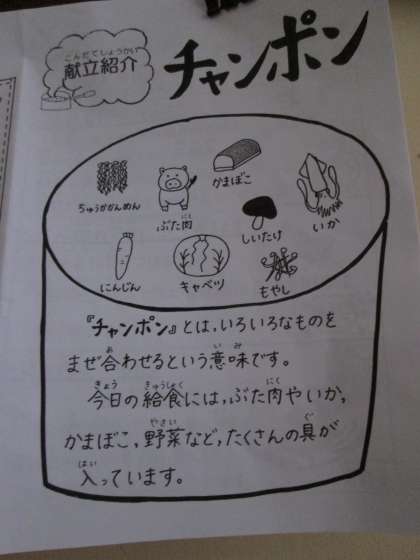 こんだてしょうかい
献立紹介
チャンポン
かまぼこ
ちゅうかかんめん
ぶた肉
にく
しいたけ
いか
にんじん
キャベツ
もやし
『チャンポン』とは、いろいろなものを
あ
い み
まぜ合わせるという意味です。
きょう
きゅうしょく
にく
今日の給食には、ぶた肉やいか、
やさい
ぐ
かまぼこ、野菜など、たくさんの具が
はい
入っています。